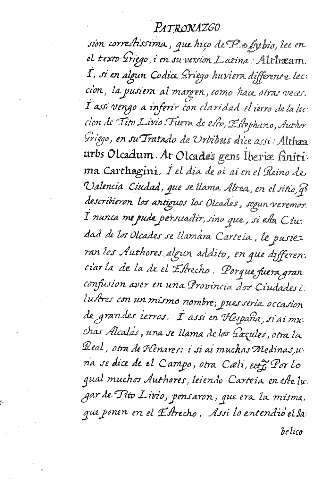 PATRONAZGO
sion correctissima, que hiço de Polybio, lee en
el texto Griego, i en su version Latina: Althæam.
I, si en algun Codice Griego huviera differente lec-
cion, la pusiera al margen, como hace otras veces.
I assi vengo a inferir con claridad el ierro de la lec-
cion de Tito Livio. Fuera de esto, Estephano, Author
Griego, en su Tratado de Urbibus dice assi: Althæa
urbs Olcadum. At Olcades gens Iberiæ finiti-
ma Carthagini. I el dia de oi ai en el Reino de
Valencia Ciudad, que se llama Altea, en el sitio, q̃
describieron los antiguos los Olcades, segun veremos.
I nunca me pude persuadir, sino que, si esta Ciu-
dad de los Olcades se llamàra Carteia, le pusie-
ran los Authores algun addito, en que differen-
ciarla de la de el Estrecho. Porque fuera gran
confusion aver en una Provincia dos Ciudades i-
lustres con un mismo nombre; pues seria occasion
de grandes ierros. I assi en Hespaña, si ai mu-
chas Alcalàs, una se llama de los Gazules, otra la
Real, otra de Henares: i si ai muchas Medinas, u-
na se dice de el Campo, otra Cæli, etc. Por lo
qual muchos Authores, leiendo Carteia en este lu-
gar de Tito Livio, pensaron, que era la misma,
que ponen en el Estrecho. Assi lo entendiò el Ba-
belico